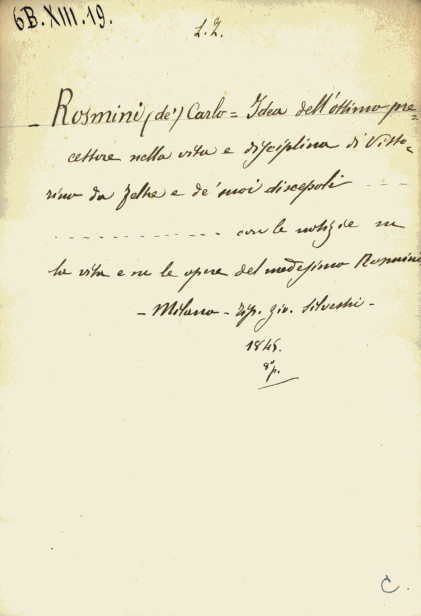 6B.XIII.19.
L.Z.
_ Rosmini (de') Carlo = Idea dell'ottimo pre=
cettore nella vita e disciplina di Vitto=
rino da Feltre e de' suoi discepoli - - - -
- - - - - - - - - - - - - con le notizie su
la vita e su le opere del medesimo Rosmini
- Milano - Tip. Gio. Silvestri -
1845.
8°p.
C.